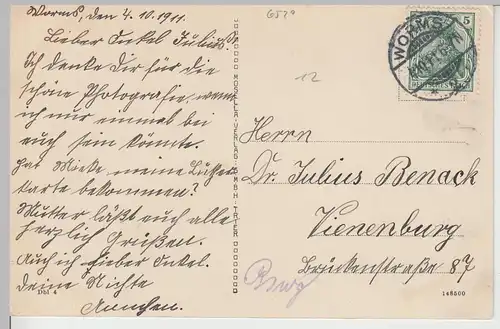 Worms, den 4.10.1911.
Lieber Onkel Julius!
Ich danke Dir für die
schöne Photografie, wenn
ich nur einmal bei
euch sein könnte.
Hat Mieke meine
karte bekommen?
Mutter läßt euch alle
herzlich Grüßen.
Auch ich Lieber Onkel.
deine Nichte
Annchen.
Dbl 4
MOSELLA-VERLAG G.M.B.H. TRIER
12
WORMS
5
Herrn
Dr. Julius Benack
Vienenburg
Brückenstraße 87
148500